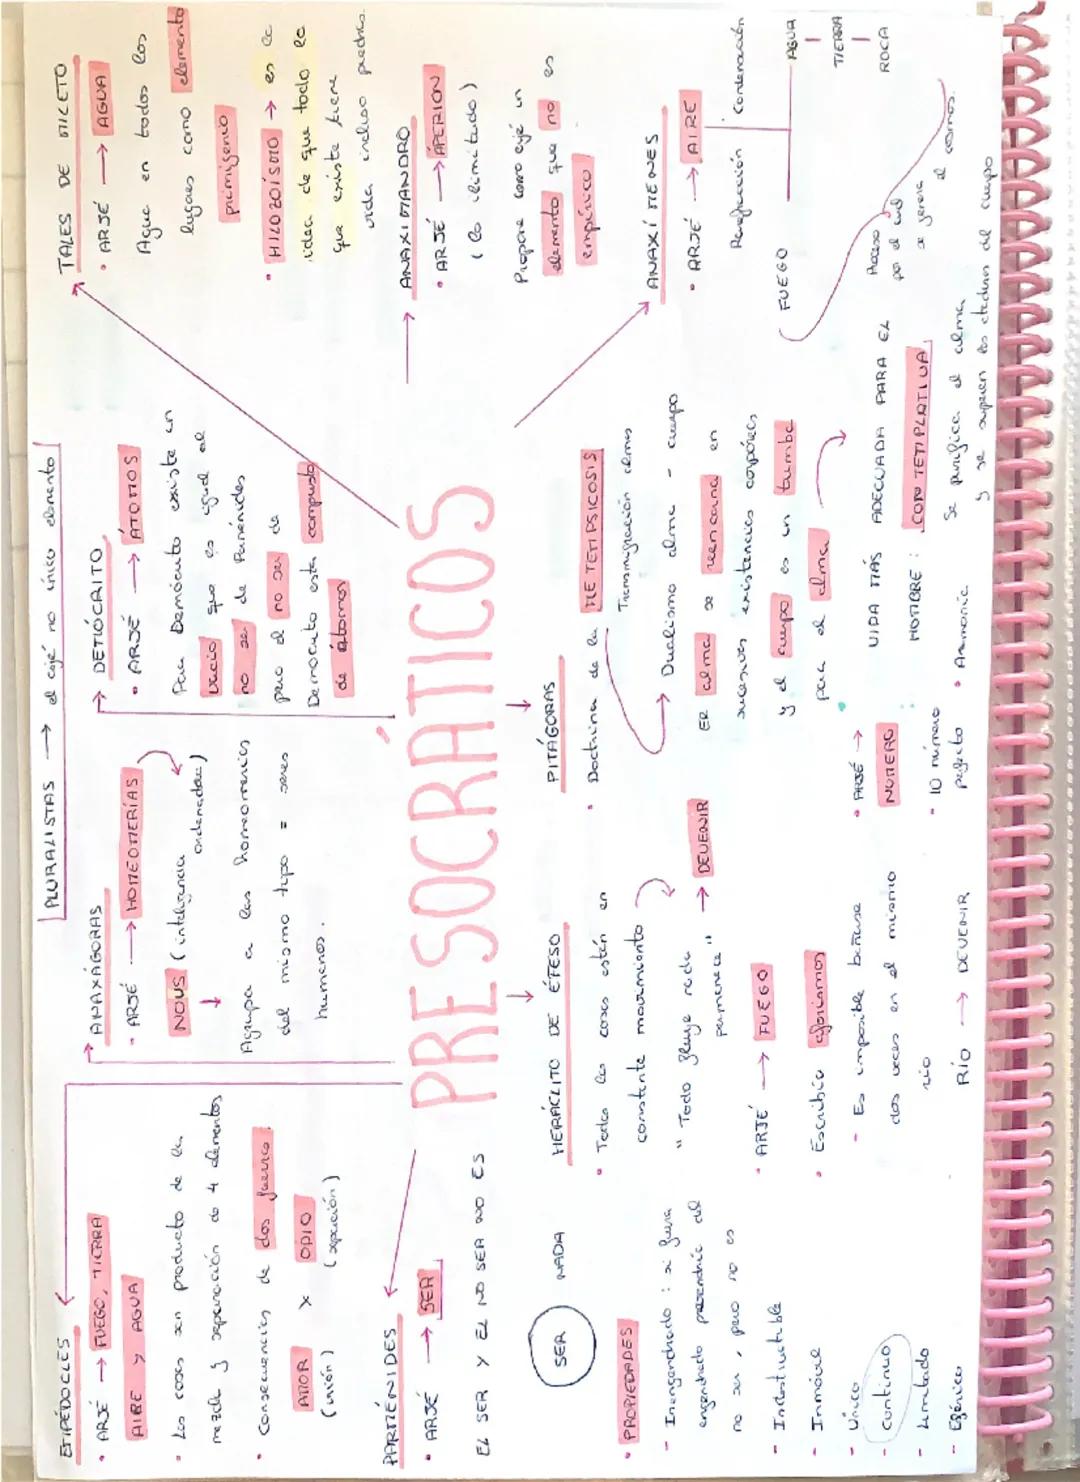 PLURALISTAS → el arjé no único elemento
EMPÉDOCLES
• ARJÉ → FUEGO, TIERRA
AIRE Y AGUA
• Las cosas son producto de la
mezcla y separación de 4 elementos
• Consecuencias de dos fuerzas:
AMOR X ODIO
(unión) (separación)
ANAXÁGORAS
• ARJÉ → HOMEOMERÍAS
NOUS (inteligencia
ordenadora)
Agrupa a las homeomerias
del mismo tipo = seres
humanos.
DEMÓCRITO
• ARJÉ → ÁTOMOS
Para Demócrito existe un
vacío que es igual al
no ser de Parménides
pero el no ser de
Demócrito está compuesto
de átomos
TALES DE MILETO
• ARJÉ → AGUA
Agua en todos los
lugares como elemento
primigenio
• HILOZOÍSMO → es la
idea de que todo lo
que existe tiene
vida incluso piedras.
PRESOCRÁTICOS
PARMÉNIDES
• ARJÉ → SER
EL SER Y EL NO SER NO ES
SER NADA
• PROPIEDADES
- Inengendrado : si fuera
engendrado procedería del
no ser, pero no es
- Indestructible
- Inmóvil
- Único
- Continuo
- Limitado
- Esférico
HERÁCLITO DE ÉFESO
• Todas las cosas están en
constante movimiento
"Todo fluye nada
permanece" → DEVENIR
• ARJÉ → FUEGO
• Escribía aforismos
- Es imposible bañarse
dos veces en el mismo
río
RÍO → DEVENIR
PITÁGORAS
• Doctrina de la METEMPSICOSIS
Transmigración almas
→ Dualismo alma - cuerpo
ER alma se reencarna en
sucesivas existencias corpóreas
y el cuerpo es un tumba
para el alma
VIDA MÁS ADECUADA PARA EL
HOMBRE : CONTEMPLATIVA
Se purifica el alma
y se superan las ataduras del cuerpo
• ARJÉ →
NÚMERO
• 10 número
perfecto
• Armonía
ANAXIMANDRO
• ARJÉ → ÁPEIRON
(lo ilimitado)
Propone como arjé un
elemento que no es
empírico
ANAXÍMENES
• ARJÉ → AIRE
Rarefacción Condensación
FUEGO AGUA
TIERRA
ROCA
Proceso
por el cual
se genera
el cosmos.